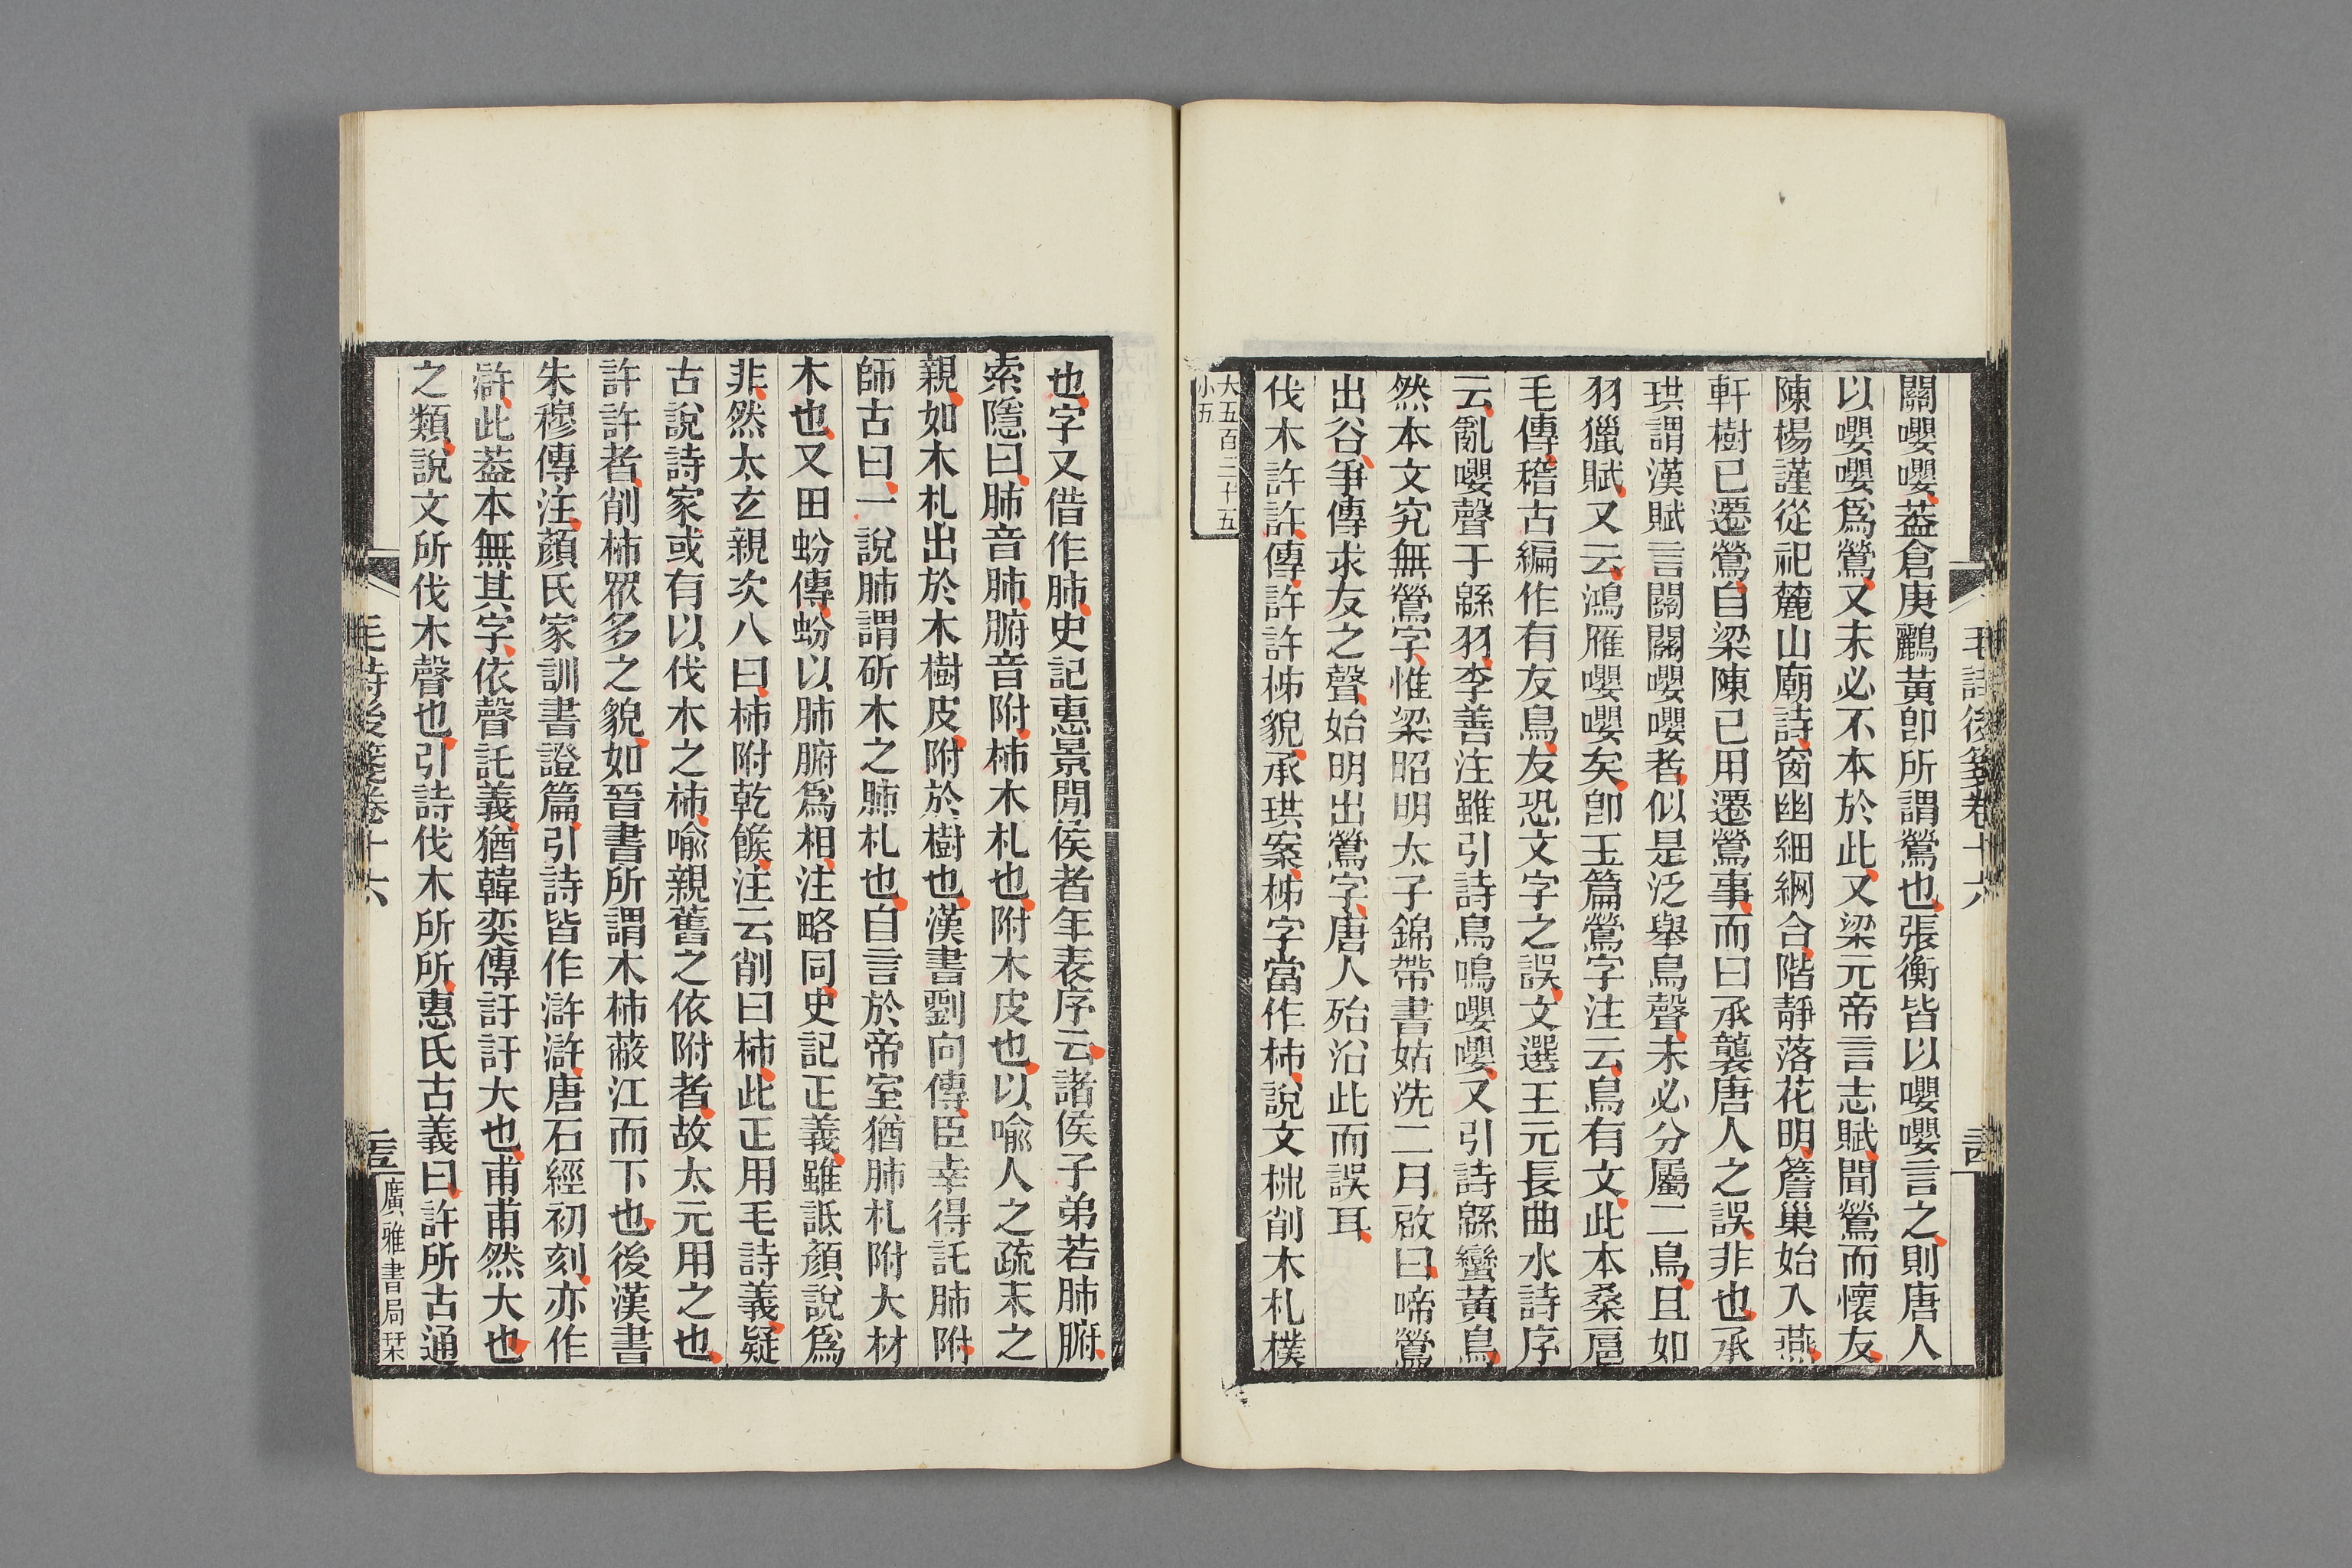 關嚶嚶葢倉庚鸝黃卽所謂鶯也張衡皆以嚶嚶言之則唐人
以嚶嚶爲鶯又未必不本於此又梁元帝言志賦聞鶯而懷友
陳楊謹從祀麓山廟詩窗幽細網合階靜落花明簷巢始入燕
軒樹已遷鶯自梁陳已用遷鶯事而曰承襲唐人之誤非也承
珙謂漢賦言關關嚶嚶者似是泛舉鳥聲未必分屬二鳥且如
羽獵賦又云鴻雁嚶嚶矣卽玉篇鶯字注云鳥有文此本桑扈
毛傳稽古編作有友鳥友恐文字之誤文選王元長曲水詩序
云亂嚶聲于緜羽李善注雖引詩鳥鳴嚶嚶又引詩緜蠻黃鳥
然本文究無鶯字惟梁昭明太子錦帶書姑洗二月啟曰啼鶯
出谷爭傳求友之聲始明出鶯字唐人殆沿此而誤耳
伐木許許傳許許柹貌承珙案柹字當作杮說文㭒削木札樸
大五百二十五
小五
毛詩後箋卷十六
也字又借作肺史記惠景閒侯者年表序云諸侯子弟若肺腑
索隱曰肺音杮腑音附杮木札也附木皮也以喩人之疏末之
親如木札出於木樹皮附於樹也漢書劉向傳臣幸得託肺附
師古曰一說肺謂斫木之肺札也自言於帝室猶肺札附大材
木也又田蚡傳蚡以肺腑爲相注略同史記正義雖詆顏說爲
非然太玄親次八曰杮附乾餱注云削曰杮此正用毛詩義疑
古說詩家或有以伐木之杮喩親舊之依附者故太元用之也
許許者削杮眾多之貌如晉書所謂木杮蔽江而下也後漢書
朱穆傳注顏氏家訓書證篇引詩皆作滸滸唐石經初刻亦作
滸此葢本無其字依聲託義猶韓奕傳訏訏大也甫甫然大也
之類說文所伐木聲也引詩伐木所所惠氏古義曰許所古通
毛詩後箋卷十六
廣雅書局栞